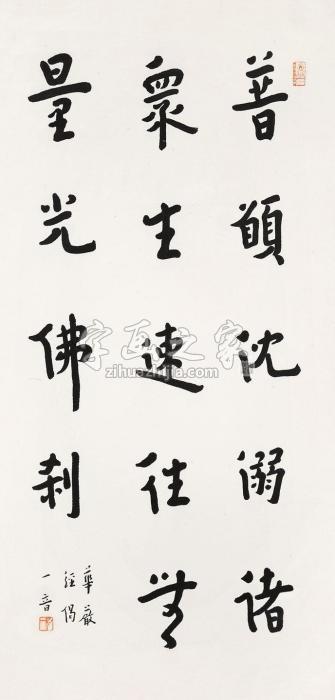 普願沈溺諸
眾生速往無
量光佛刹
華嚴
經偈
一音
字画之家
zihuazhijia.com